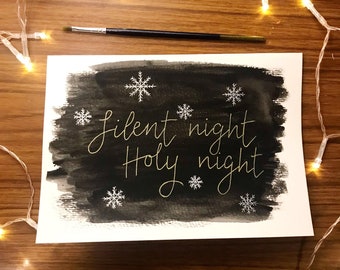 Silent night
Holy night